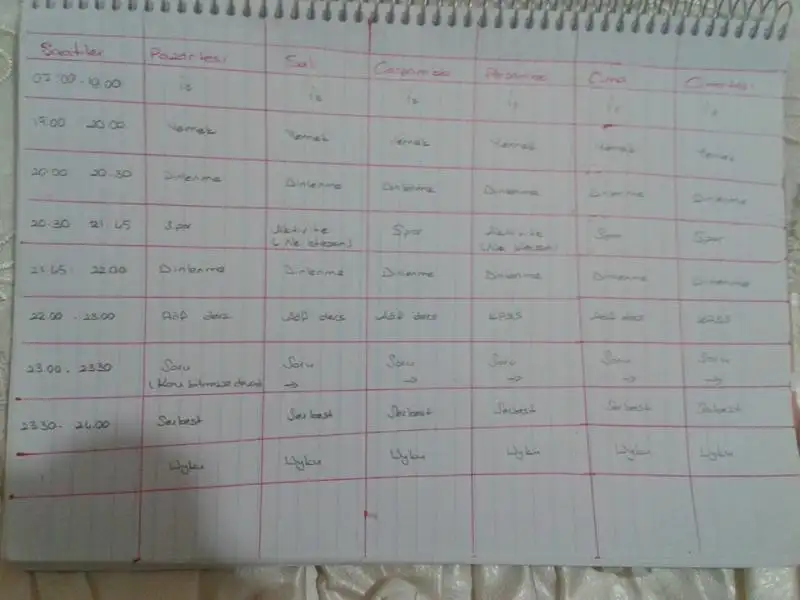 Saatler Pazartesi Salı Çarşamba Perşembe Cuma Cumartesi
07:00 - 19.00 İş İş İş İş İş İş
19:00 20:00 Yemek Yemek Yemek Yemek Yemek Yemek
20:00 20.30 Dinlenme Dinlenme Dinlenme Dinlenme Dinlenme Dinlenme
20:30 21.45 Spor Aktivite Spor Aktivite Spor Spor
(Ne istersen) (Ne istersen)
21.45 22.00 Dinlenme Dinlenme Dinlenme Dinlenme Dinlenme Dinlenme
22.00 - 23.00 Aöf ders Aöf ders Aöf ders KPSS Aöf ders KPSS
23.00 - 23.30 Soru Soru Soru Soru Soru Soru
(Konu bitmezse devam) → → → → →
23.30 - 24.00 Serbest Serbest Serbest Serbest Serbest Serbest
Uyku Uyku Uyku Uyku Uyku Uyku